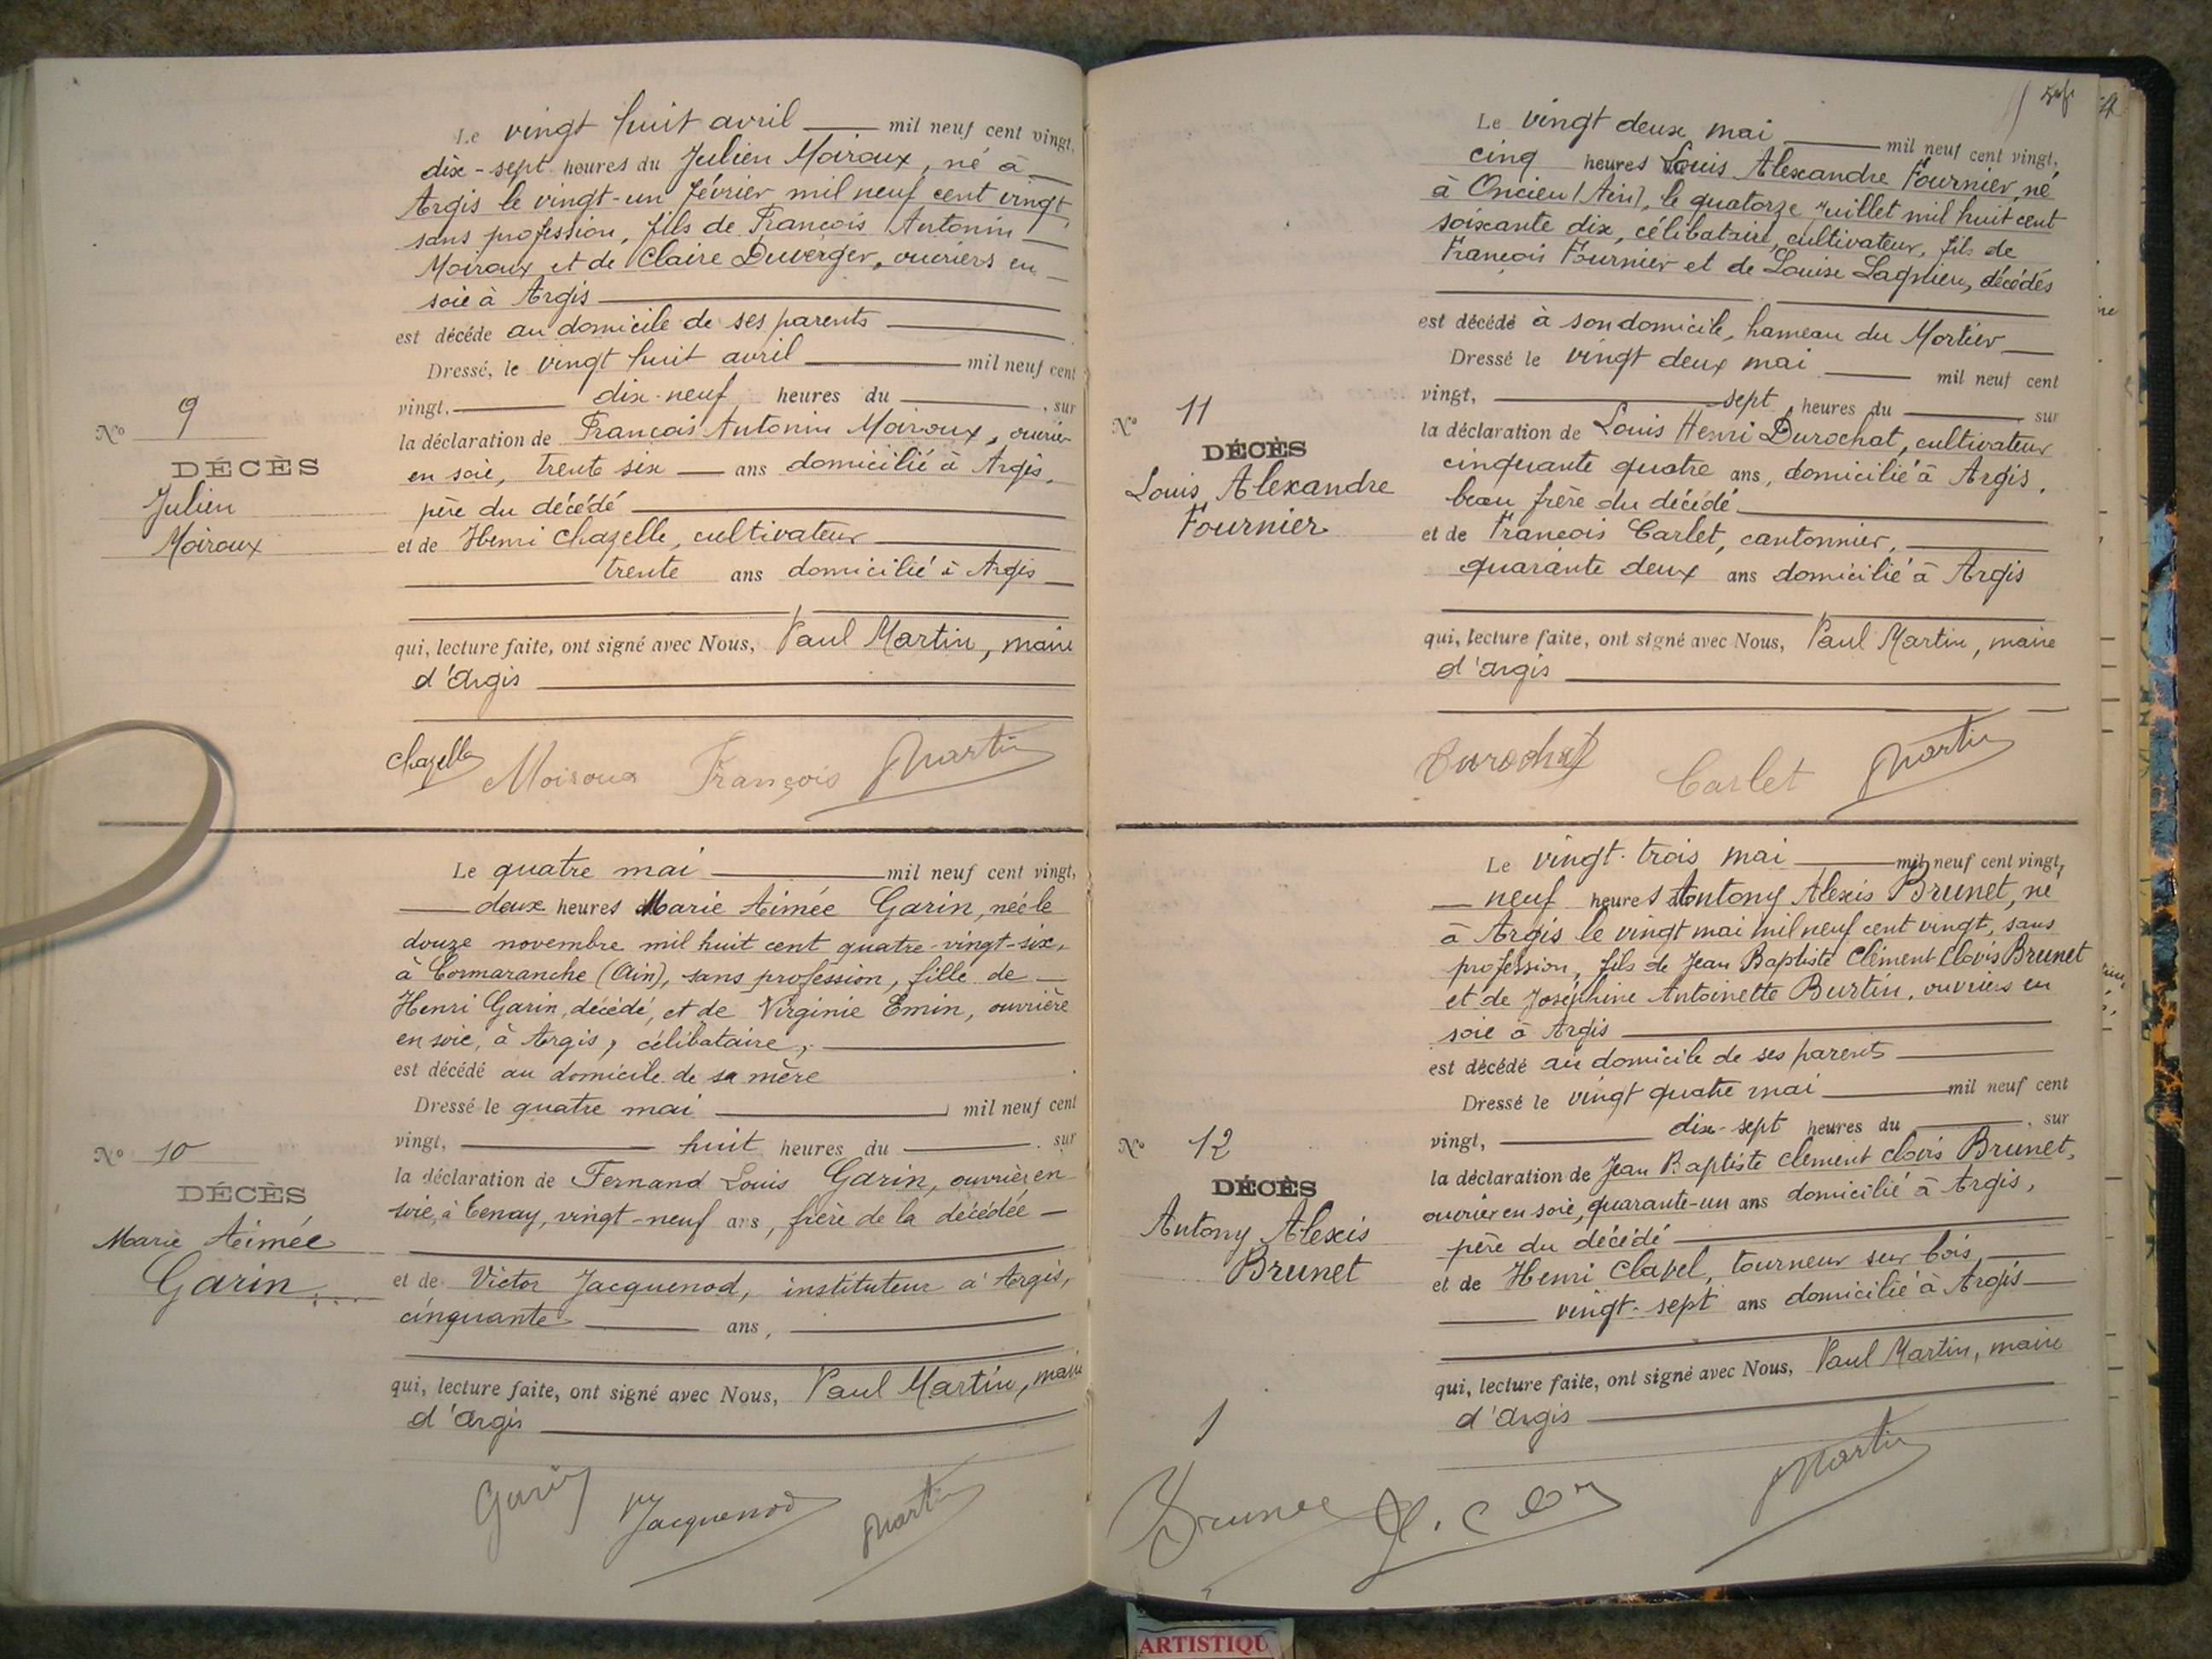 N° 9
DÉCÈS
Julien
Moiroux
Le vingt huit avril mil neuf cent vingt,
dix-sept heures du Julien Moiroux, né à
Argis le vingt-un février mil neuf cent vingt,
sans profession, fils de François Antonin
Moiroux et de Claire Duverger, ouvriers en
soie à Argis
est décédé au domicile de ses parents
Dressé, le vingt huit avril mil neuf cent
vingt, dix-neuf heures du , sur
la déclaration de François Antonin Moiroux, ouvrier
en soie, trente six ans domicilié à Argis,
père du décédé
et de Henri Chazelle, cultivateur
trente ans domicilié à Argis
qui, lecture faite, ont signé avec Nous, Paul Martin, maire
d'Argis
Chazelle Moiroux François Martin
N° 10
DÉCÈS
Marie Aimée
Garin
Le quatre mai mil neuf cent vingt,
deux heures Marie Aimée Garin, née le
douze novembre mil huit cent quatre-vingt-six,
à Cormaranche (Ain), sans profession, fille de
Henri Garin, décédé, et de Virginie Emin, ouvrière
en soie, à Argis, célibataire,
est décédé au domicile de sa mère
Dressé le quatre mai mil neuf cent
vingt, huit heures du , sur
la déclaration de Fernand Louis Garin, ouvrier en
soie, à Tenay, vingt-neuf ans, frère de la décédée
et de Victor Jacquenod, instituteur à Argis,
cinquante ans,
qui, lecture faite, ont signé avec Nous, Paul Martin, maire
d'Argis
Garin Jacquenod Martin
N° 11
DÉCÈS
Louis Alexandre
Fournier
Le vingt deux mai mil neuf cent vingt,
cinq heures Louis Alexandre Fournier, né
à Oncieu (Ain), le quatorze juillet mil huit cent
soixante dix, célibataire, cultivateur, fils de
François Fournier et de Louise Lagnieu, décédés
est décédé à son domicile, hameau du Mortier
Dressé le vingt deux mai mil neuf cent
vingt, sept heures du , sur
la déclaration de Louis Henri Durochat, cultivateur
cinquante quatre ans, domicilié à Argis,
beau frère du décédé
et de François Carlet, cantonnier,
quarante deux ans domicilié à Argis
qui, lecture faite, ont signé avec Nous, Paul Martin, maire
d'Argis
Durochat Carlet Martin
N° 12
DÉCÈS
Antony Alexis
Brunet
Le vingt-trois mai mil neuf cent vingt,
neuf heures Antony Alexis Brunet, né
à Argis le vingt mai mil neuf cent vingt, sans
profession, fils de Jean Baptiste Clément Clovis Brunet
et de Joséphine Antoinette Burtin, ouvriers en
soie à Argis
est décédé au domicile de ses parents
Dressé le vingt quatre mai mil neuf cent
vingt, dix-sept heures du , sur
la déclaration de Jean Baptiste Clément Clovis Brunet,
ouvrier en soie, quarante-un ans domicilié à Argis,
père du décédé
et de Henri Clapel, tourneur sur bois,
vingt-sept ans domicilié à Argis
qui, lecture faite, ont signé avec Nous, Paul Martin, maire
d'Argis
Brunet Martin
ARTISTIQU